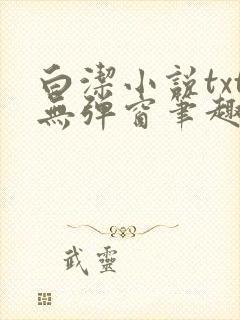 白潔小説txt
無彈窗筆趣
武靈